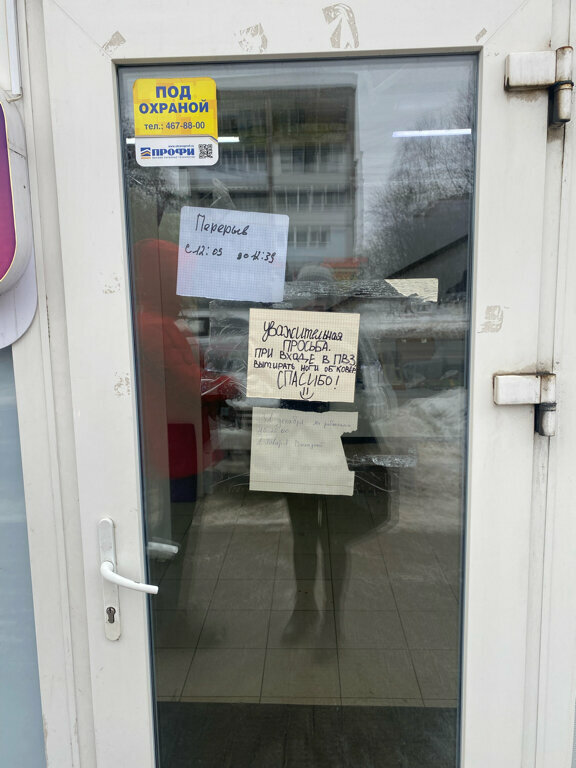 ПОД
ОХРАНОЙ
тел.: 467-88-00
ПРОФИ
Перерыв
с 12:05 до 12:35
УВАЖИТЕЛЬНАЯ
ПРОСЬБА.
ПРИ ВХОДЕ В ПВЗ
ВЫТИРАТЬ НОГИ ОБ КОВЁР
СПАСИБО!
31 декабря